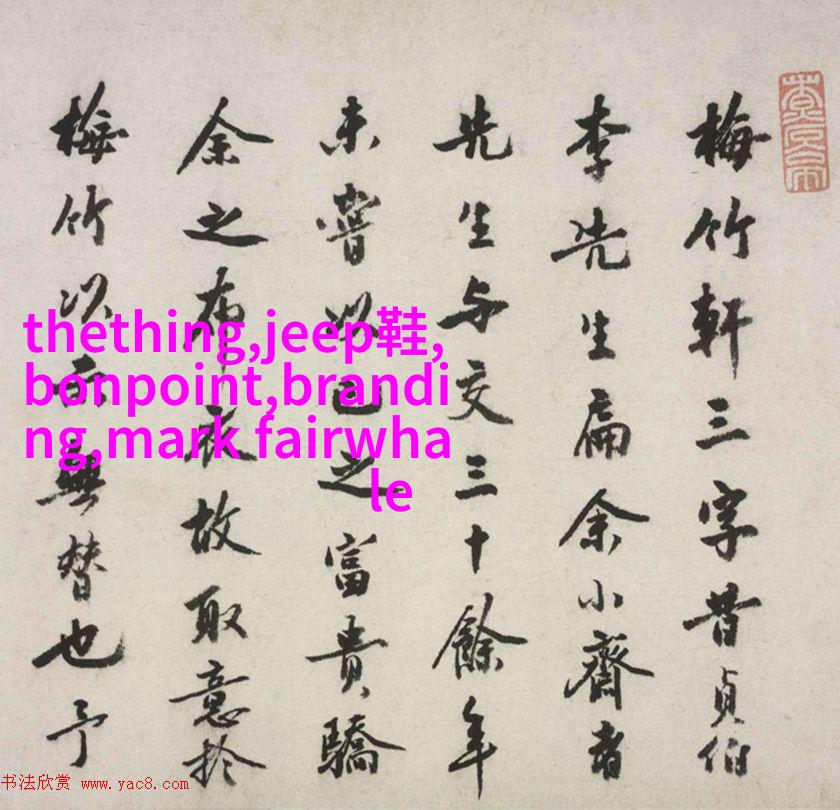 梅竹軒三字昔貞伯
李先生扁余小齋者
先生与交三十餘年
未嘗以己之富貴驕
余之布衣故取意於
梅竹以示無替也予
thething,jeep鞋,
bonpoint,brandi
ng,mark fairwha
le
书法欣赏 www.yac8.com